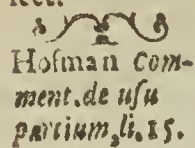 Hofman com-
ment.de uſu
partium,li.15.